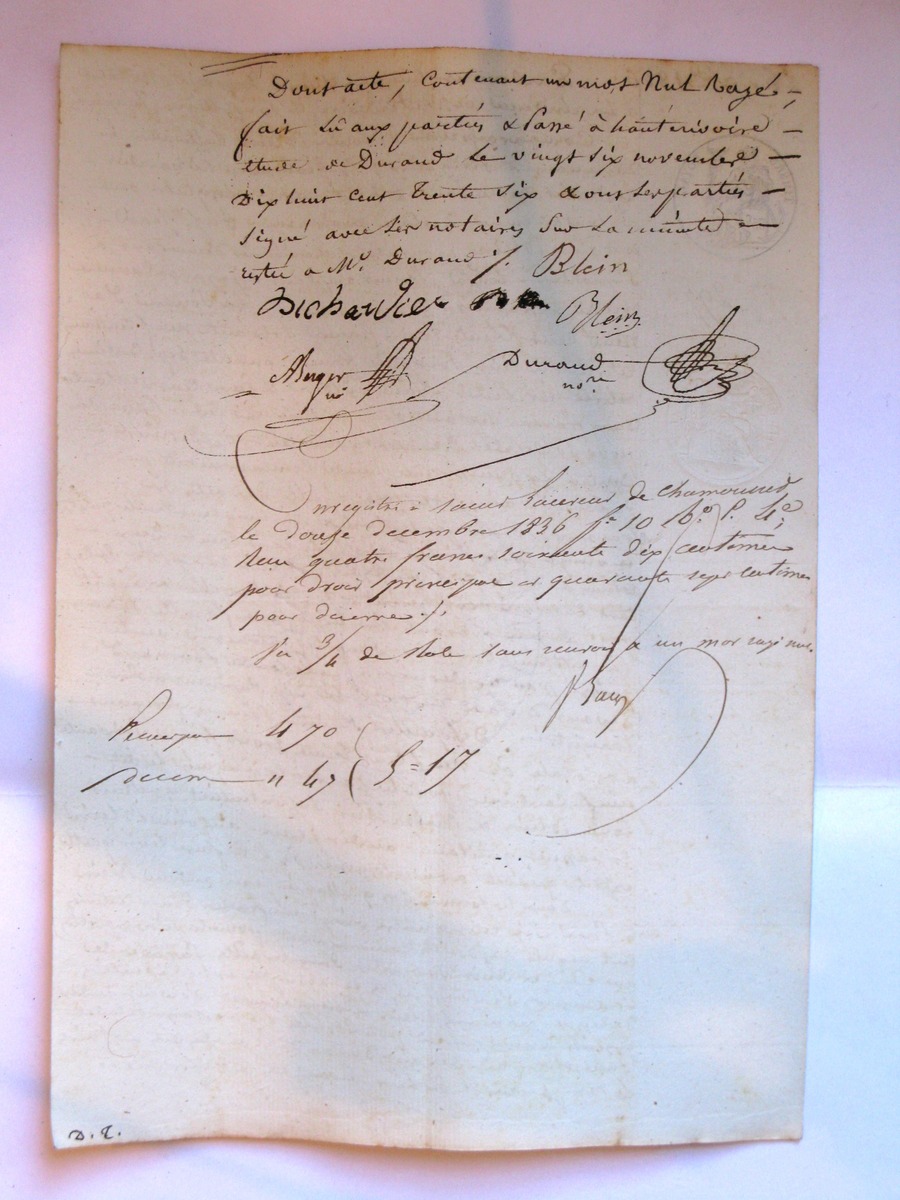 Dont acte, Contenant un mot Nul Rayé,
fait Lû aux parties & Passé à hauterivoire
étude de Durand Le vingt six novembre
Dix huit Cent Trente Six & ont Les parties
Signé avec Les notaires Sur La minute
restée a Me. Durand ./. Blein
Blein
ABerger
nre
Durand
nore
Enregistré à saint Laurent de Chamousset
le douze decembre 1836 fo 10 Vo. C. 4e;
Reçu quatre francs soixante dix centimes
pour droit principal et quarante sept centimes
pour decime ./.
3/4 de Role sans renvoi a un mot rayé nul.
Principal 4 70
decime " 47 5=17
D. T.